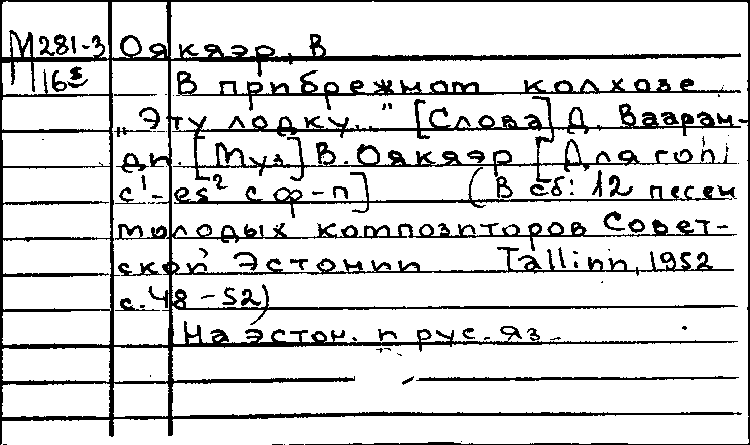 М281-3 Оякяэр, В
116⁵ В прибрежном колхозе
„Эту лодку..." [Слова] Д. Вааран-
ди. [Муз.] В. Оякяэр [Для гол.
c¹-es² с ф-п] (В сб: 12 песен
молодых композиторов Совет-
ской Эстонии Tallinn, 1952
с. 48-52)
На эстон. и рус. яз.